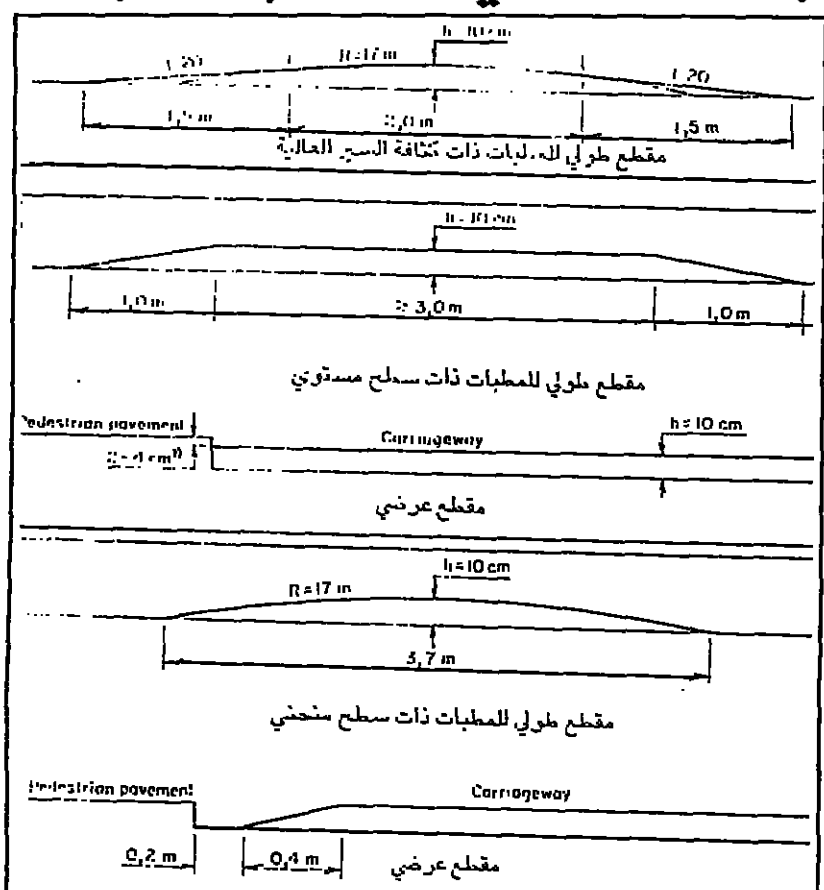 h = 10 cm
1:20 R=17 m 1:20
1,5 m 2,0 m 1,5 m
مقطع طولي للمطبات ذات كثافة السير العالية
h = 10 cm
1,0 m ≥ 3,0 m 1,0 m
مقطع طولي للمطبات ذات سطح مستوي
Pedestrian pavement Carriageway h = 10 cm
4 cm
مقطع عرضي
h = 10 cm
R = 17 m
3,7 m
مقطع طولي للمطبات ذات سطح منحني
Pedestrian pavement Carriageway
0,2 m 0,4 m مقطع عرضي